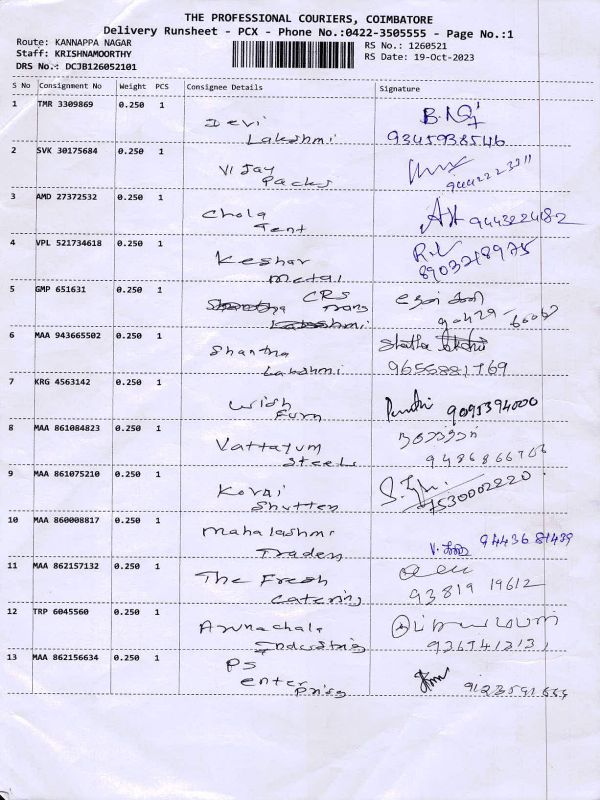 THE PROFESSIONAL COURIERS, COIMBATORE
Delivery Runsheet - PCX - Phone No.:0422-3505555 - Page No.:1
Route: KANNAPPA NAGAR
Staff: KRISHNAMOORTHY
DRS No.: DCJB126052101
RS No.: 1260521
RS Date: 19-Oct-2023
S No Consignment No Weight PCS Consignee Details Signature
1 TMR 3309869 0.250 1
Devi
Lakshmi 9345938546
2 SVK 30175684 0.250 1
Vijay
Packs
3 AMD 27372532 0.250 1
Chola
Tent
4 VPL 521734618 0.250 1
Keshar
Metal 8903218975
5 GMP 651631 0.250 1
CRS
Trans
6 MAA 943665502 0.250 1
Shantha
Lakshmi 9655881769
7 KRG 4563142 0.250 1
Wish
Furn 9095394000
8 MAA 861084823 0.250 1
Vattayum
Steel
9 MAA 861075210 0.250 1
Kovai
Shutter 7530002220
10 MAA 860008817 0.250 1
Mahalashmi
Traders 9443681439
11 MAA 862157132 0.250 1
The Fresh
Catering 93819 19612
12 TRP 6045560 0.250 1
Arunachala
Industries
13 MAA 862156634 0.250 1
PS
Enter
Prise